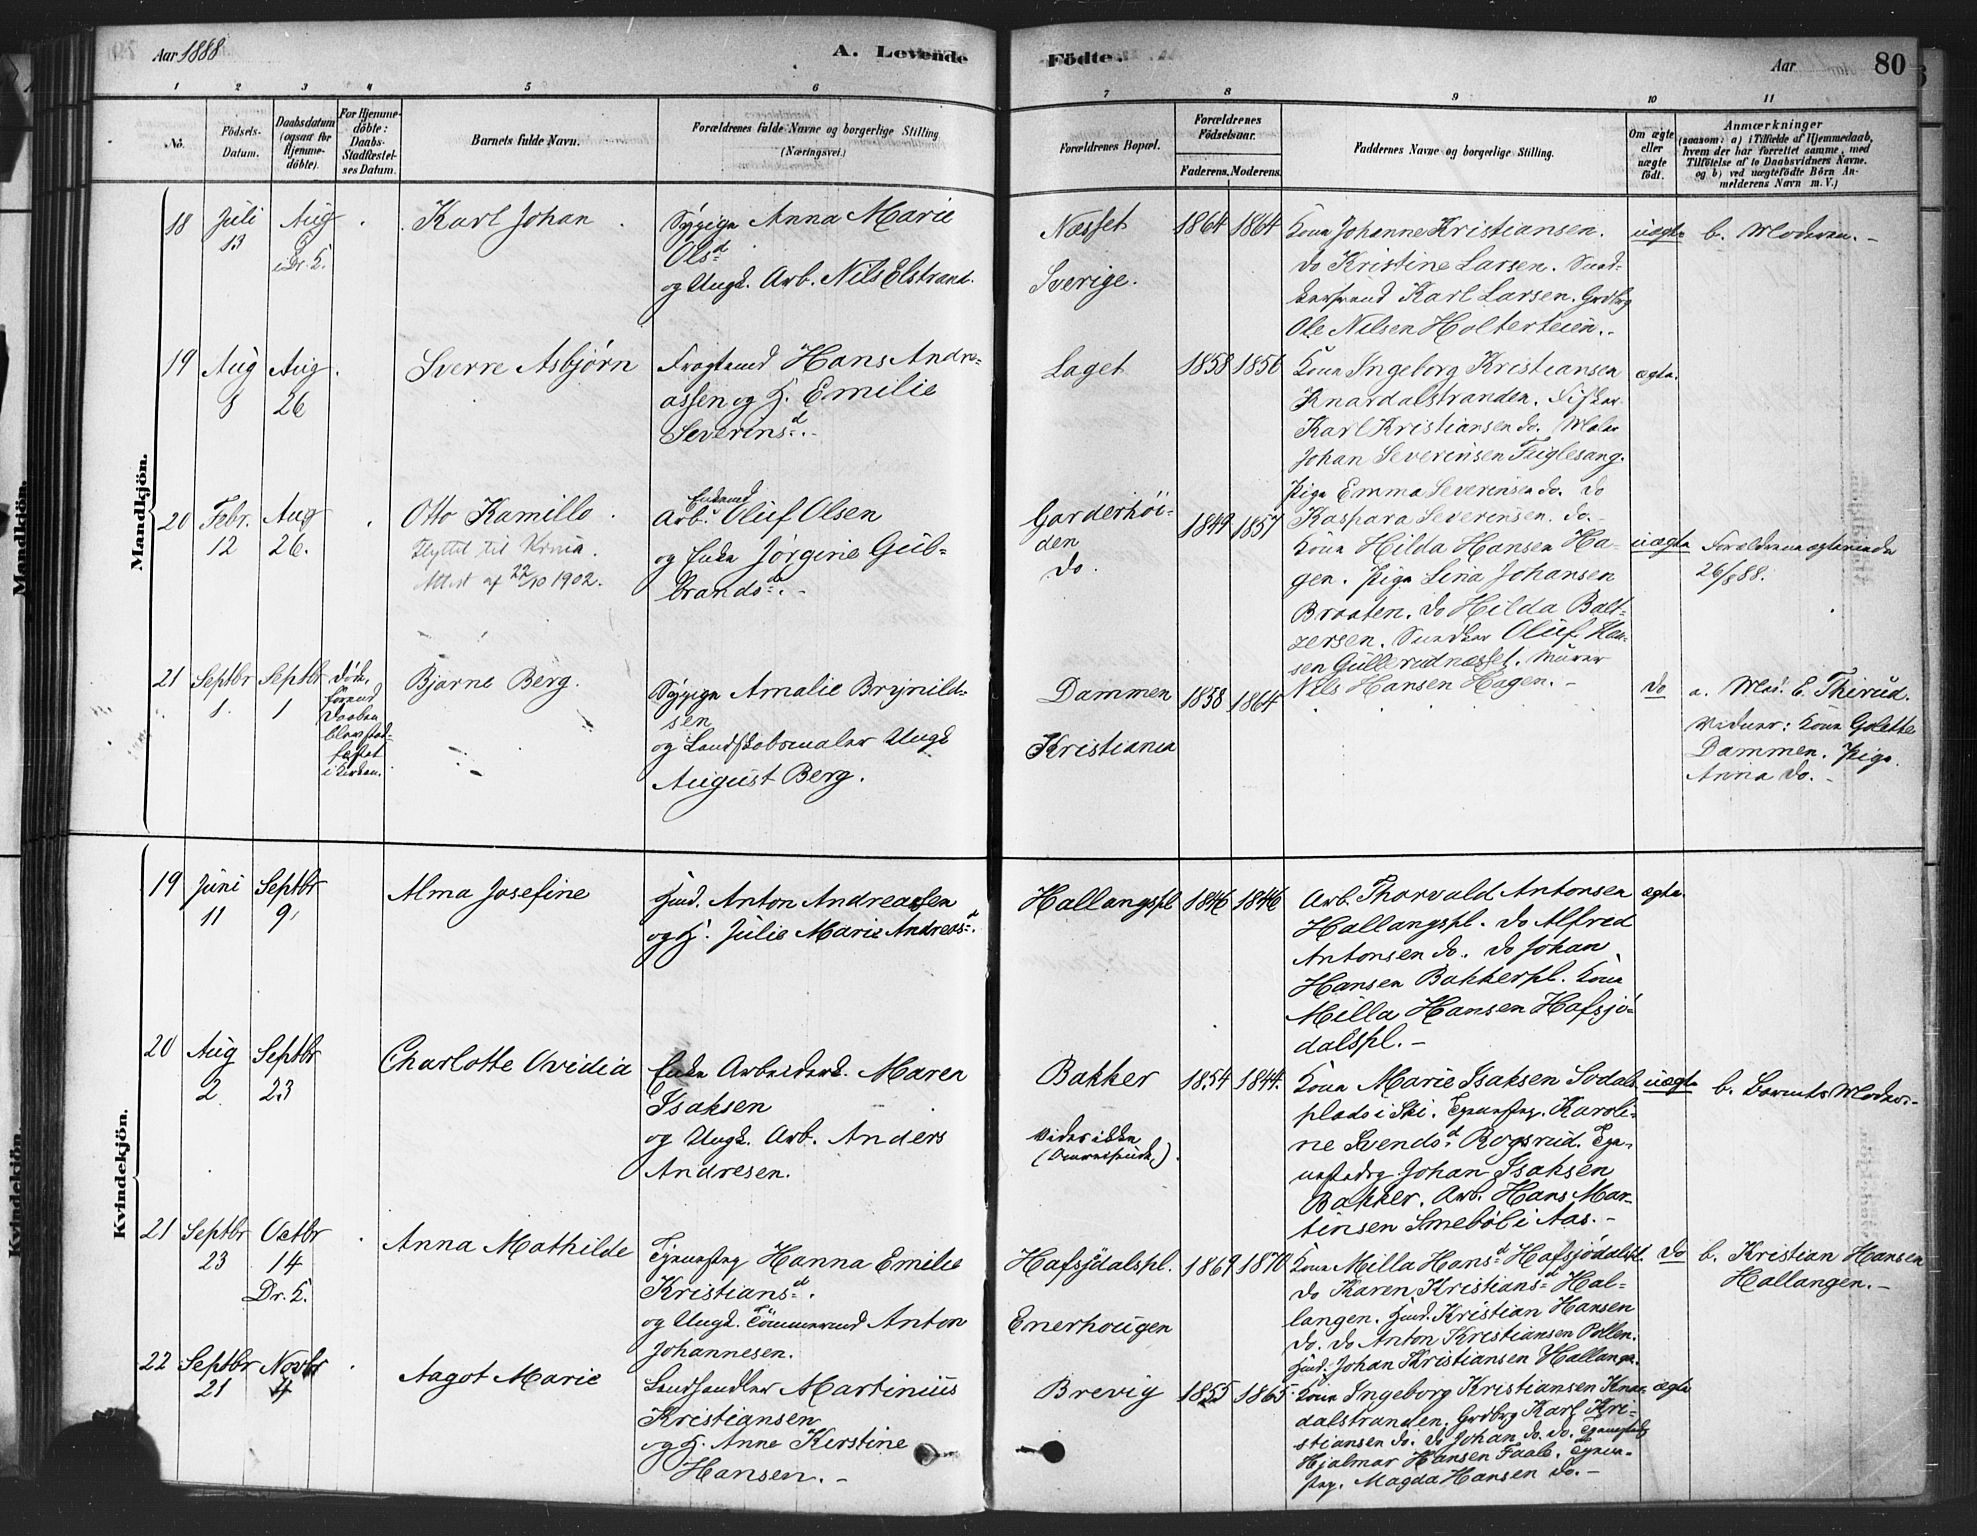 Aar 1888
A. Levende
Födte.
Aar
80
1 2 3 4 5 6 7 8 9 10 11
No.
Födsels-
Datum.
Daabsdatum
(ogsaa for
Hjemme-
döbte).
For Hjemme-
döbte:
Daabs-
Stadfæstel-
ses Datum.
Barnets fulde Navn.
Forældrenes fulde Navne og borgerlige Stilling
(Næringsvei.)
Forældrenes Bopæl.
Forældrenes
Födselsaar.
Faderens. Moderens.
Faddernes Navne og borgerlige Stilling.
Om ægte
eller
uægte
födt.
Anmærkninger
(saasom: a) i Tilfælde af Hjemmedaab,
hvem der har forrettet samme, med
Tilföielse af to Daabsvidners Navne.
og b) ved uægtefödte Börn An-
melderens Navn m. V.)
Mandkjön.
18
Juli
13
Aug
Karl Johan
Sypige Anna Marie
Olsd
og Ungk. Arb. Nils Elstrand.
Næsset
Sverige.
1864 1864
Kone Johanne Kristiansen.
do Kristine Larsen.
Karl Larsen. Grdbrg
Ole Nilsen Holterteien.
uægte
b. Moderen.
19
Aug
8
Aug
26
Sverre Asbjørn
Fragtemd Hans Andre-
assen og H. Emilie
Severinsd.
Laget
1858 1856
Kone Ingeborg Kristiansen
Knardalstranden. Fisker
Karl Kristiansen do. Maler
Johan Severinsen Fuglesang.
Pige Emma Severinsen do. do
Kaspara Severinsen. do.
ægte.
20
Febr.
12
Aug
26.
Otto Kamillo
Flyttet til Krnia.
Attest af 22/10 1902.
Enkemd
Arb. Oluf Olsen
og Enke Jørgine Gul-
brandsd.
Garderhöi-
den
do.
1849 1857
Kone Hilda Hansen Ha-
gen. Pige Lina Johansen
Braaten. do Hilda Balt-
zersen. Snedker Oluf Han-
sen Gullerudnæsset. Murer
Nils Hansen Hagen.
uægte
Forældrene ægteviede
26/8 88.
21
Septbr
1
Septbr
1
Döde
förend
Daaben
blev stad-
fæstet
i Kirken.
Bjarne Berg.
Sypige Amalie Brynild-
sen
og Landskabsmaler Ungk
August Berg.
Dammen
Kristiania
1858 1864
do
a. E. Thirud.
Vidner: Kone Golette
Dammen. Pige
Anna do.
Kvindekjön.
19
Juni
11
Septbr
9
Alma Josefine
Husmd. Anton Andreassen
og H. Julie Marie Andreasd.
Hallangspl
1846 1846
Arb. Thorvald Antonsen
Hallangspl. do Alfred
Antonsen do. do Johan
Hansen Bakkerpl. Kone
Milla Hansen Hafsjö-
dalspl.
ægte
20
Aug
2
Septbr
23
Charlotte Ovidia
Enke Arbeidersk. Maren
Isaksen
og Ungk. Arb. Anders
Andresen.
Bakker
Vides ikke
1854 1844.
Kone Marie Isaksen Sodals
plads i Ski. Tjenestpg. Karoli-
ne Svendsd Rogsrud. Tje-
nestedrg Johan Isaksen
Bakker. Arb. Hans Mar-
tinsen Smeböl i Aas.
uægte
b. Barnets Moder.
21
Septbr
23
Octbr
14
Dr. K.
Anna Mathilde
Tjenestpg Hanna Emilie
Kristiansd.
og Ungk. Tömmermd Anton
Johannesen.
Hafsjödalspl.
Enerhougen
1869 1870
Kone Milla Hansd Hafsjödalspl.
do Karen Kristiansd Hal-
langen. Husmd. Kristian Hansen
do. do Anton Kristiansen Pollen.
Husmd. Johan Kristiansen Hallangen.
do
b. Kristian Hansen
Hallangen.
22
Septbr
21
Novbr
4
Aagot Marie
Landhandler Martinius
Kristiansen
og H. Anne Kirstine
Hansen.
Brevig
1855 1865
Kone Ingeborg Kristiansen Knar-
dalstranden. Grdbrg Karl Kri-
stiansen do. do Johan do. do. Tjenestedrg
Hjalmar Hansen Faale. Tjene-
stpg. Magda Hansen do.
ægte